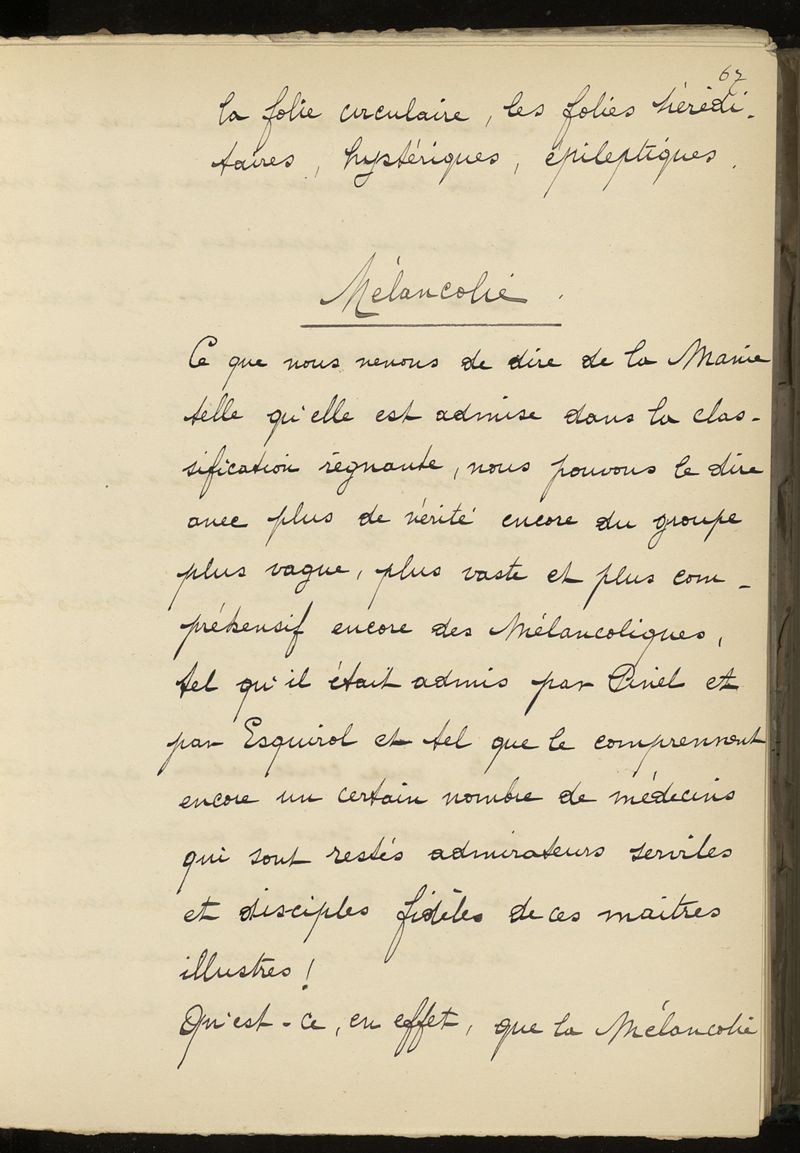 67
la folie circulaire, les folies hérédi-
taires, hystériques, épileptiques.
Mélancolie.
Ce que nous venons de dire de la Manie
telle qu'elle est admise dans la clas-
sification régnante, nous pouvons le dire
avec plus de vérité encore du groupe
plus vague, plus vaste et plus com-
préhensif encore des Mélancoliques,
tel qu'il était admis par Pinel et
par Esquirol et tel que le comprennent
encore un certain nombre de médecins
qui sont restés admirateurs serviles
et disciples fidèles de ces maîtres
illustres!
Qu'est-ce, en effet, que la Mélancolie